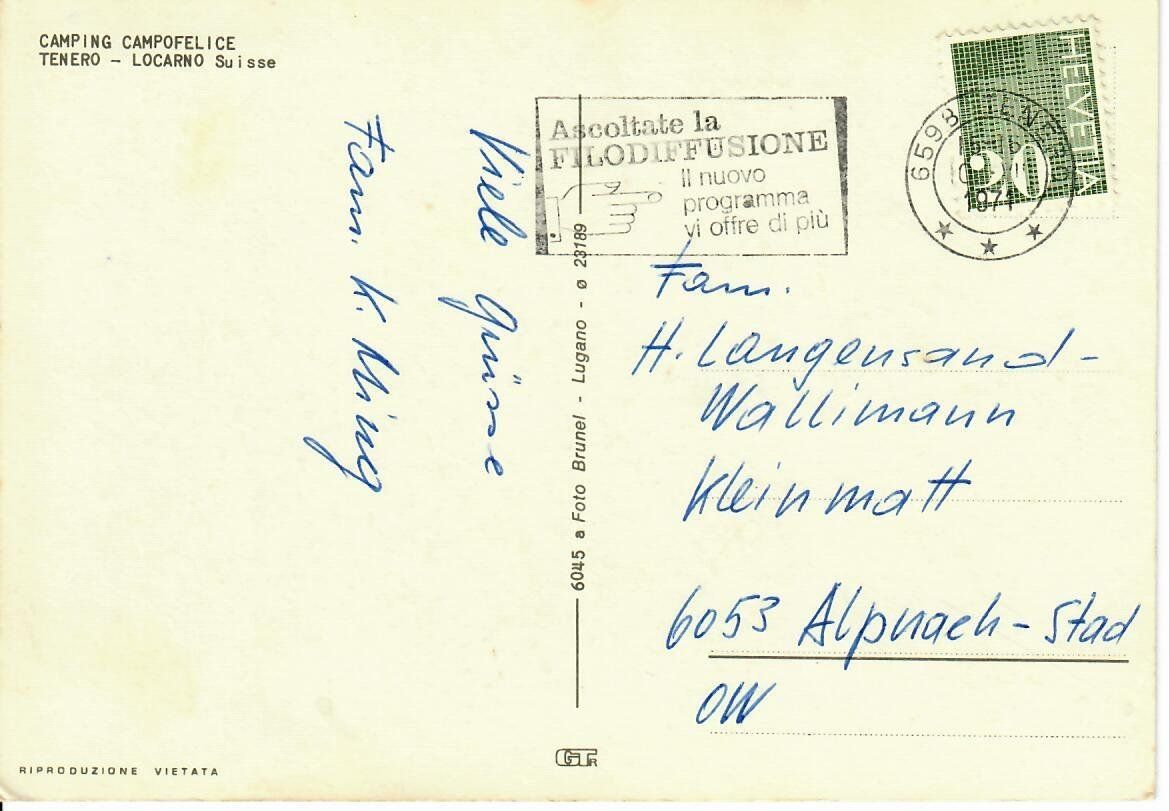 CAMPING CAMPOFELICE
TENERO – LOCARNO Suisse
Viele Grüsse
Fam. K. Ming
RIPRODUZIONE VIETATA
6045 a Foto Brunel - Lugano - ø 23189
GTR
Ascoltate la
FILODIFFUSIONE
Il nuovo
programma
vi offre di più
6598 TENERO
1971
HELVETIA
20
Fam.
H. Langensand-
Wallimann
Kleinmatt
6053 Alpnach-Stad
OW